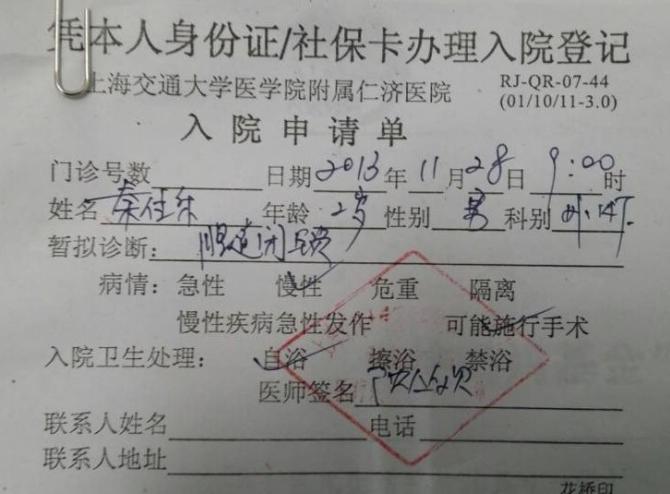 凭本人身份证/社保卡办理入院登记
上海交通大学医学院附属仁济医院 RJ-QR-07-44
(01/10/11-3.0)
入院申请单
门诊号数 日期2013年11月28日9:00时
姓名秦佳乐 年龄2岁 性别男 科别
暂拟诊断：胆道闭锁
病情：急性 慢性 危重 隔离
慢性疾病急性发作 可能施行手术
入院卫生处理：自浴 擦浴 禁浴
医师签名
联系人姓名 电话
联系人地址
花桥印